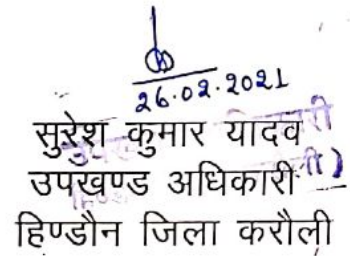 26.02.2021
सुरेश कुमार यादव
उपखण्ड अधिकारी
हिण्डौन जिला करौली